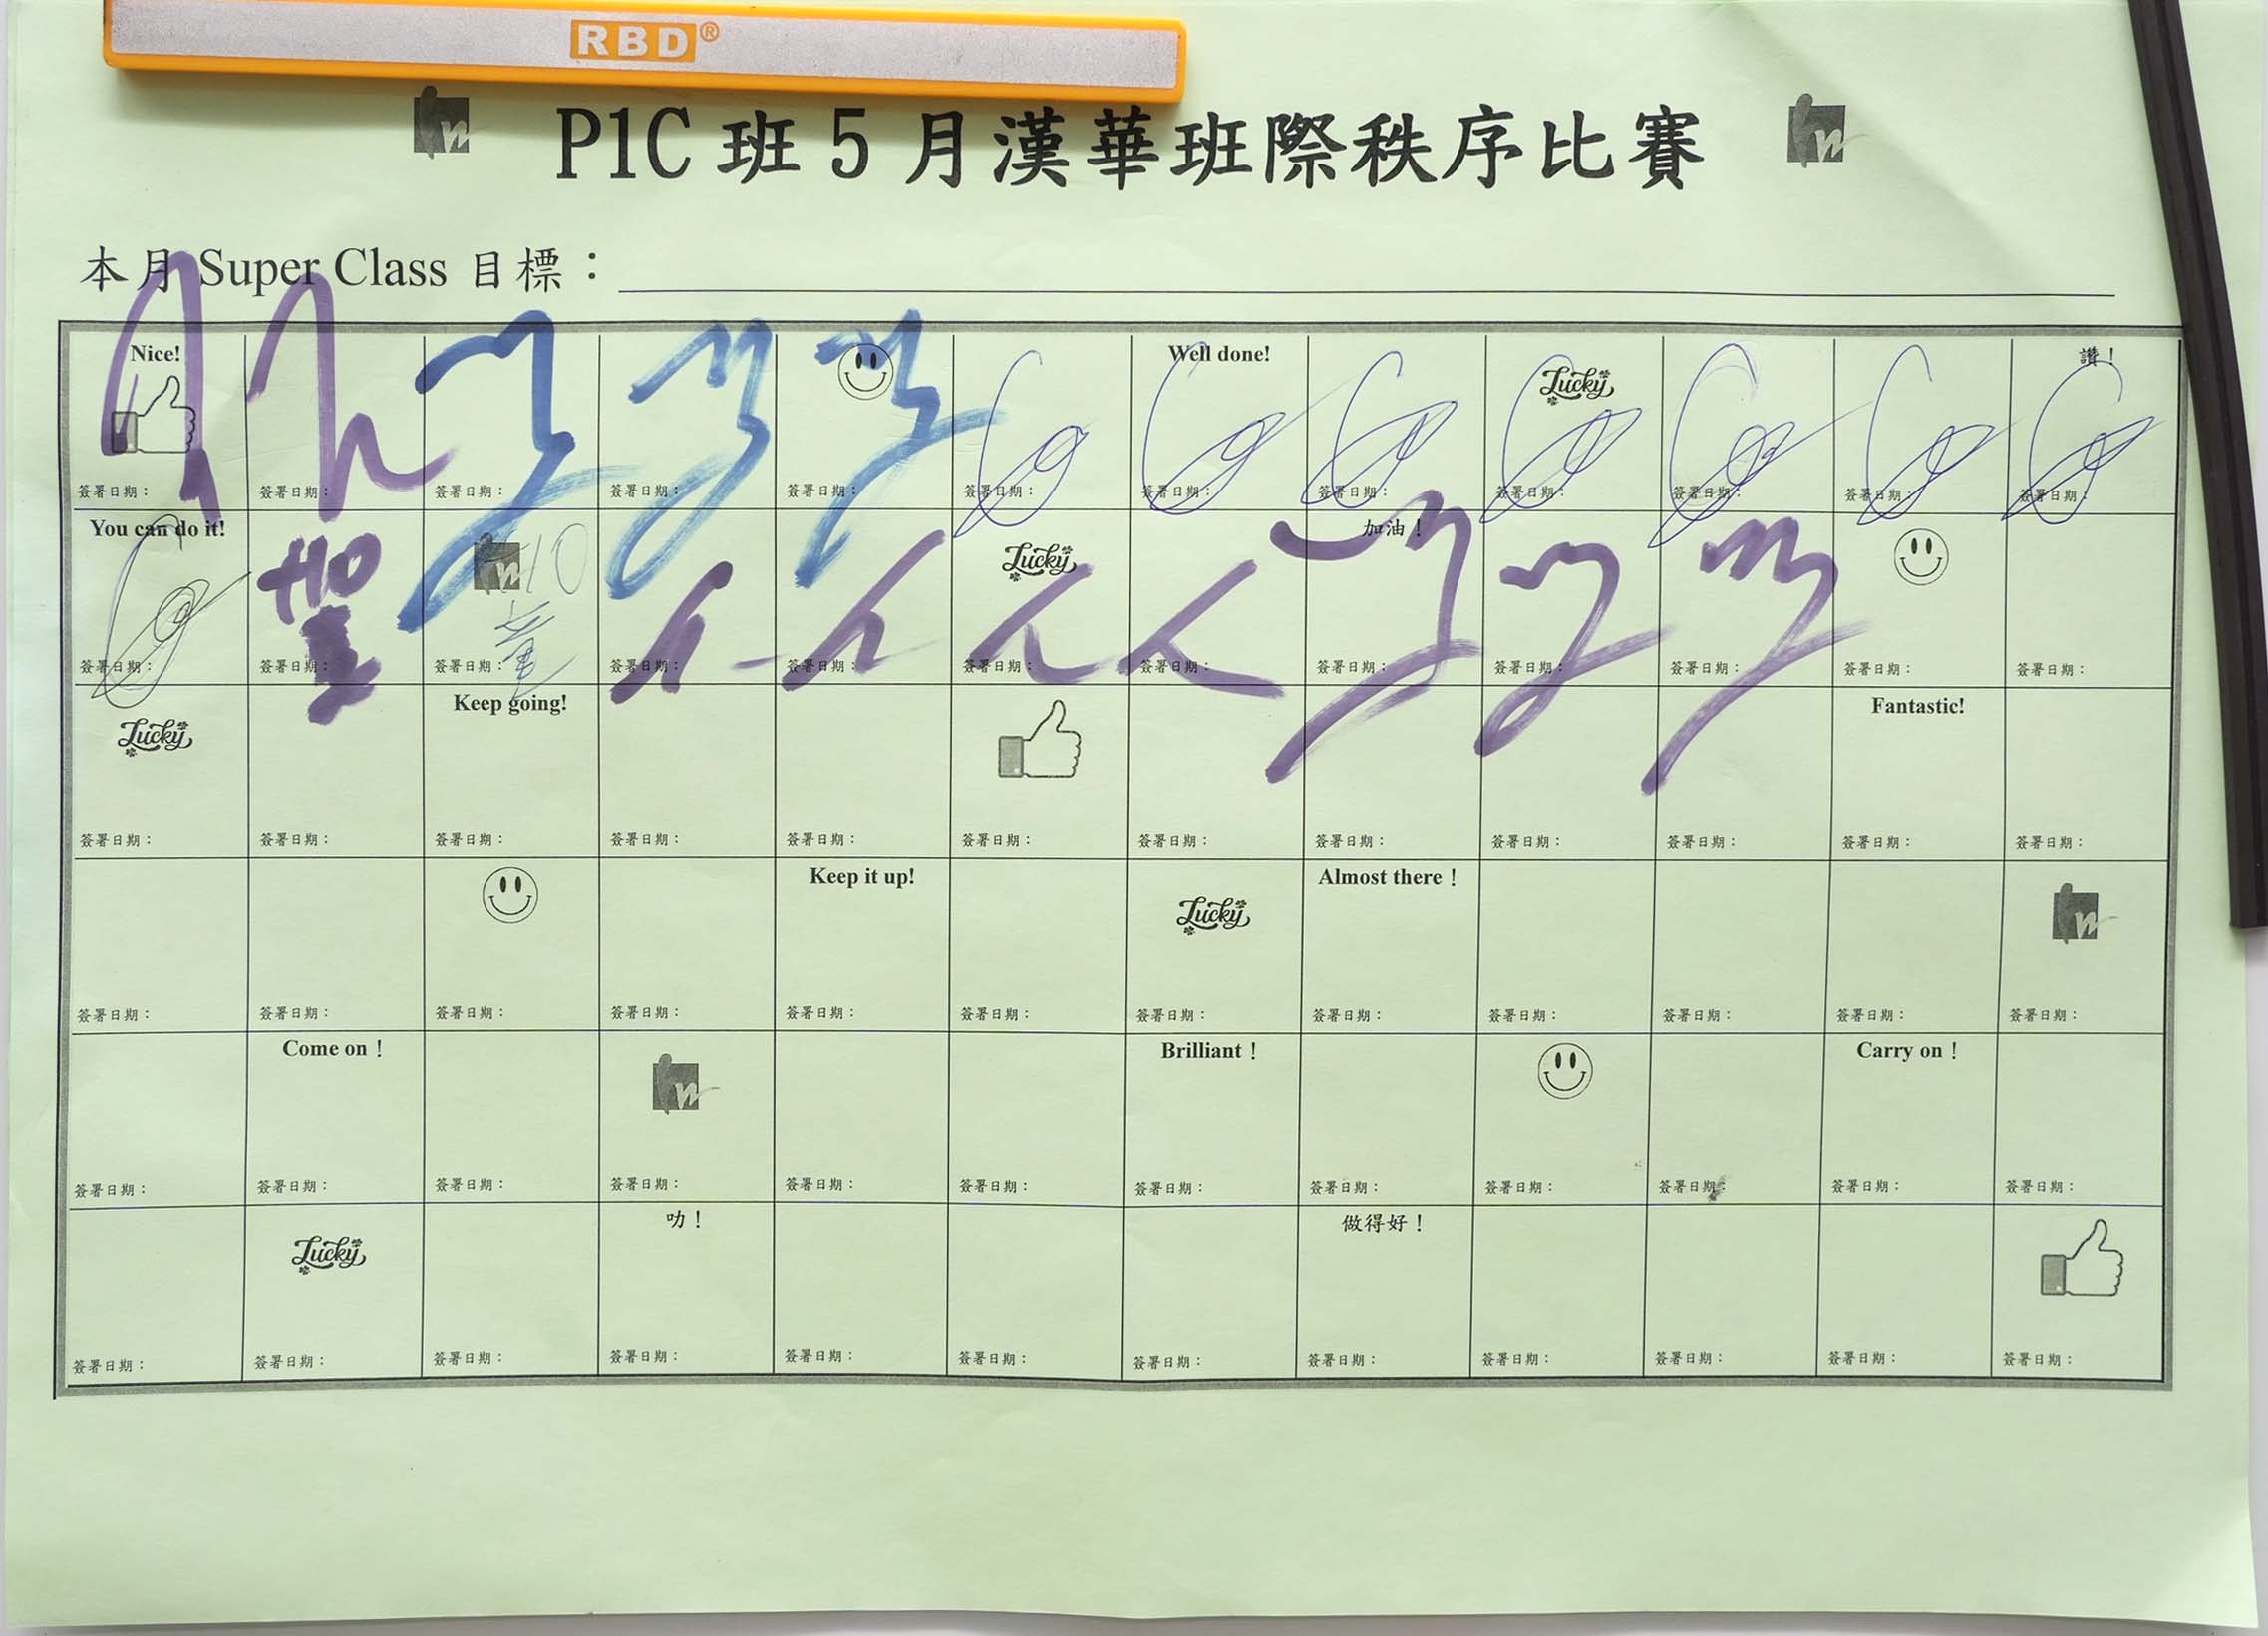 RBD®
P1C 班 5 月漢華班際秩序比賽
本月 Super Class 目標：
Nice! Well done! Lucky 讚！
簽署日期： 簽署日期： 簽署日期： 簽署日期： 簽署日期： 簽署日期： 簽署日期： 簽署日期： 簽署日期： 簽署日期： 簽署日期： 簽署日期：
You can do it! +10 +10 Lucky 加油！
簽署日期： 簽署日期： 簽署日期： 簽署日期： 簽署日期： 簽署日期： 簽署日期： 簽署日期： 簽署日期： 簽署日期： 簽署日期： 簽署日期：
Lucky Keep going! Fantastic!
簽署日期： 簽署日期： 簽署日期： 簽署日期： 簽署日期： 簽署日期： 簽署日期： 簽署日期： 簽署日期： 簽署日期： 簽署日期： 簽署日期：
Keep it up! Lucky Almost there！
簽署日期： 簽署日期： 簽署日期： 簽署日期： 簽署日期： 簽署日期： 簽署日期： 簽署日期： 簽署日期： 簽署日期： 簽署日期： 簽署日期：
Come on！ Brilliant！ Carry on！
簽署日期： 簽署日期： 簽署日期： 簽署日期： 簽署日期： 簽署日期： 簽署日期： 簽署日期： 簽署日期： 簽署日期： 簽署日期： 簽署日期：
Lucky 叻！ 做得好！
簽署日期： 簽署日期： 簽署日期： 簽署日期： 簽署日期： 簽署日期： 簽署日期： 簽署日期： 簽署日期： 簽署日期： 簽署日期： 簽署日期：